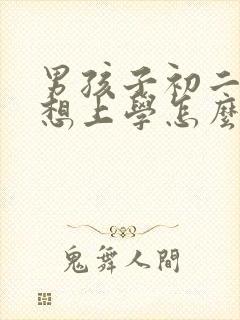 男孩子初二
想上學怎麼
鬼舞人間